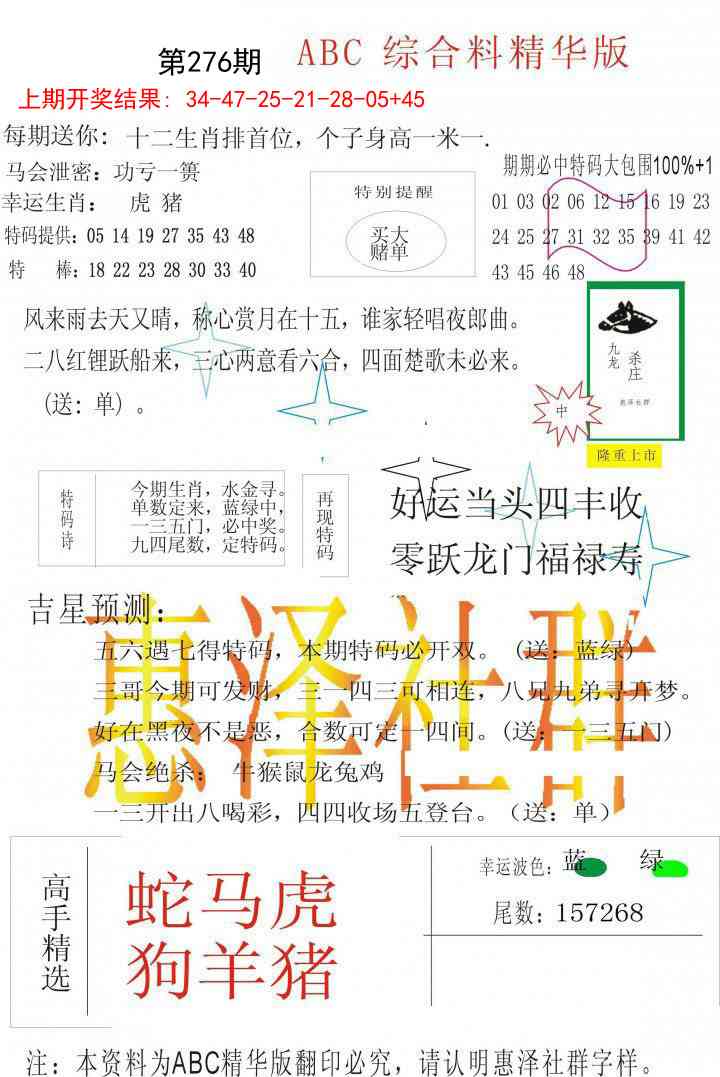 第276期
ABC 综合料精华版
上期开奖结果: 34-47-25-21-28-05+45
每期送你: 十二生肖排首位，个子身高一米一.
马会泄密: 功亏一篑
幸运生肖: 虎 猪
特码提供: 05 14 19 27 35 43 48
特 棒: 18 22 23 28 30 33 40
特别提醒
买大
赌单
期期必中特码大包围100%+1
01 03 02 06 12 15 16 19 23
24 25 27 31 32 35 39 41 42
43 45 46 48
风来雨去天又晴，称心赏月在十五，谁家轻唱夜郎曲。
二八红锂跃船来，三心两意看六合，四面楚歌未必来。
(送: 单) 。
九龙
杀庄
惠泽社群
中
隆重上市
特码诗
今期生肖，水金寻。
单数定来，蓝绿中，
一三五门，必中奖。
九四尾数，定特码。
再现特码
好运当头四丰收
零跃龙门福禄寿
吉星预测:
惠泽社群
五六遇七得特码，本期特码必开双。 (送: 蓝绿)
三哥今期可发财，三一四三可相连，八兄九弟寻开梦。
好在黑夜不是恶，合数可定一四间。(送: 一三五门)
马会绝杀: 牛猴鼠龙兔鸡
一三开出八喝彩，四四收场五登台。（送: 单）
高手精选
蛇马虎
狗羊猪
幸运波色: 蓝 绿
尾数: 157268
注: 本资料为ABC精华版翻印必究，请认明惠泽社群字样。